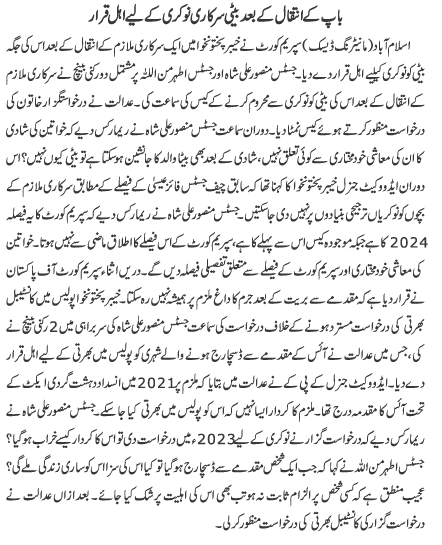 باپ کے انتقال کے بعد بیٹی سرکاری نوکری کے لیے اہل قرار
اسلام آباد (مانیٹرنگ ڈیسک) سپریم کورٹ نے خیبر پختونخوا میں ایک سرکاری ملازم کے انتقال کے بعد اس کی جگہ
بیٹی کو نوکری کیلیے اہل قرار دے دیا۔ جسٹس منصور علی شاہ اور جسٹس اطہر من اللہ پر مشتمل دو رکنی بینچ نے سرکاری ملازم
کے انتقال کے بعد اس کی بیٹی کو نوکری سے محروم کرنے کے کیس کی سماعت کی۔ عدالت نے درخواستگزار خاتون کی
درخواست منظور کرتے ہوئے کیس نمٹا دیا۔ دوران سماعت جسٹس منصور علی شاہ نے ریمارکس دیے کہ خواتین کی شادی
کا ان کی معاشی خود مختاری سے کوئی تعلق نہیں، شادی کے بعد بھی بیٹا والد کا جانشین ہو سکتا ہے تو بیٹی کیوں نہیں؟ اس
دوران ایڈووکیٹ جنرل خیبر پختونخوا کا کہنا تھا کہ سابق چیف جسٹس فائز عیسیٰ کے فیصلے کے مطابق سرکاری ملازم کے
بچوں کو نوکریاں ترجیحی بنیادوں پر نہیں دی جاسکتیں۔ جسٹس منصور علی شاہ نے ریمارکس دیے کہ سپریم کورٹ کا یہ فیصلہ
2024 کا ہے جبکہ موجودہ کیس اس سے پہلے کا ہے، سپریم کورٹ کے اس فیصلے کا اطلاق ماضی سے نہیں ہوتا۔ خواتین
کی معاشی خود مختاری اور سپریم کورٹ کے فیصلے سے متعلق تفصیلی فیصلہ دیں گے۔ دریں اثناء، سپریم کورٹ آف پاکستان
نے قرار دیا ہے کہ مقدمے سے بریت کے بعد جرم کا داغ ملزم پر ہمیشہ نہیں رہ سکتا۔ خیبر پختونخوا پولیس میں کانسٹیبل
بھرتی کی درخواست مسترد ہونے کے خلاف درخواست کی سماعت جسٹس منصور علی شاہ کی سربراہی میں 2 رکنی بینچ نے
کی، جس میں عدالت نے آئس کے مقدمے سے ڈسچارج ہونے والے شہری کو پولیس میں بھرتی کے لیے اہل قرار
دے دیا۔ ایڈووکیٹ جنرل کے پی کے نے عدالت میں بتایا کہ ملزم پر 2021 میں انسداد دہشت گردی ایکٹ کے
تحت آئس کا مقدمہ درج تھا۔ ملزم کا کردار ایسا نہیں کہ اس کو پولیس میں بھرتی کیا جاسکے۔ جسٹس منصور علی شاہ نے
ریمارکس دیے کہ درخواست گزار نے نوکری کے لیے 2023ء میں درخواست دی تو اس کا کردار کیسے خراب ہو گیا؟
جسٹس اطہر من اللہ نے کہا کہ جب ایک شخص مقدمے سے ڈسچارج ہو گیا تو کیا اس کی سزا اس کو ساری زندگی ملے گی؟
عجیب منطق ہے کہ کسی شخص پر الزام ثابت نہ ہو تب بھی اس کی اہلیت پر شک کیا جائے۔ بعد ازاں عدالت نے
درخواست گزار کی کانسٹیبل بھرتی کی درخواست منظور کرلی۔